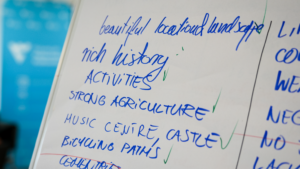 beautiful locational landscape
rich history
ACTIVITIES
STRONG AGRICULTURE
MUSIC CENTRE, CASTLE
BICYCLING PATHS
WEA
NEG
NO